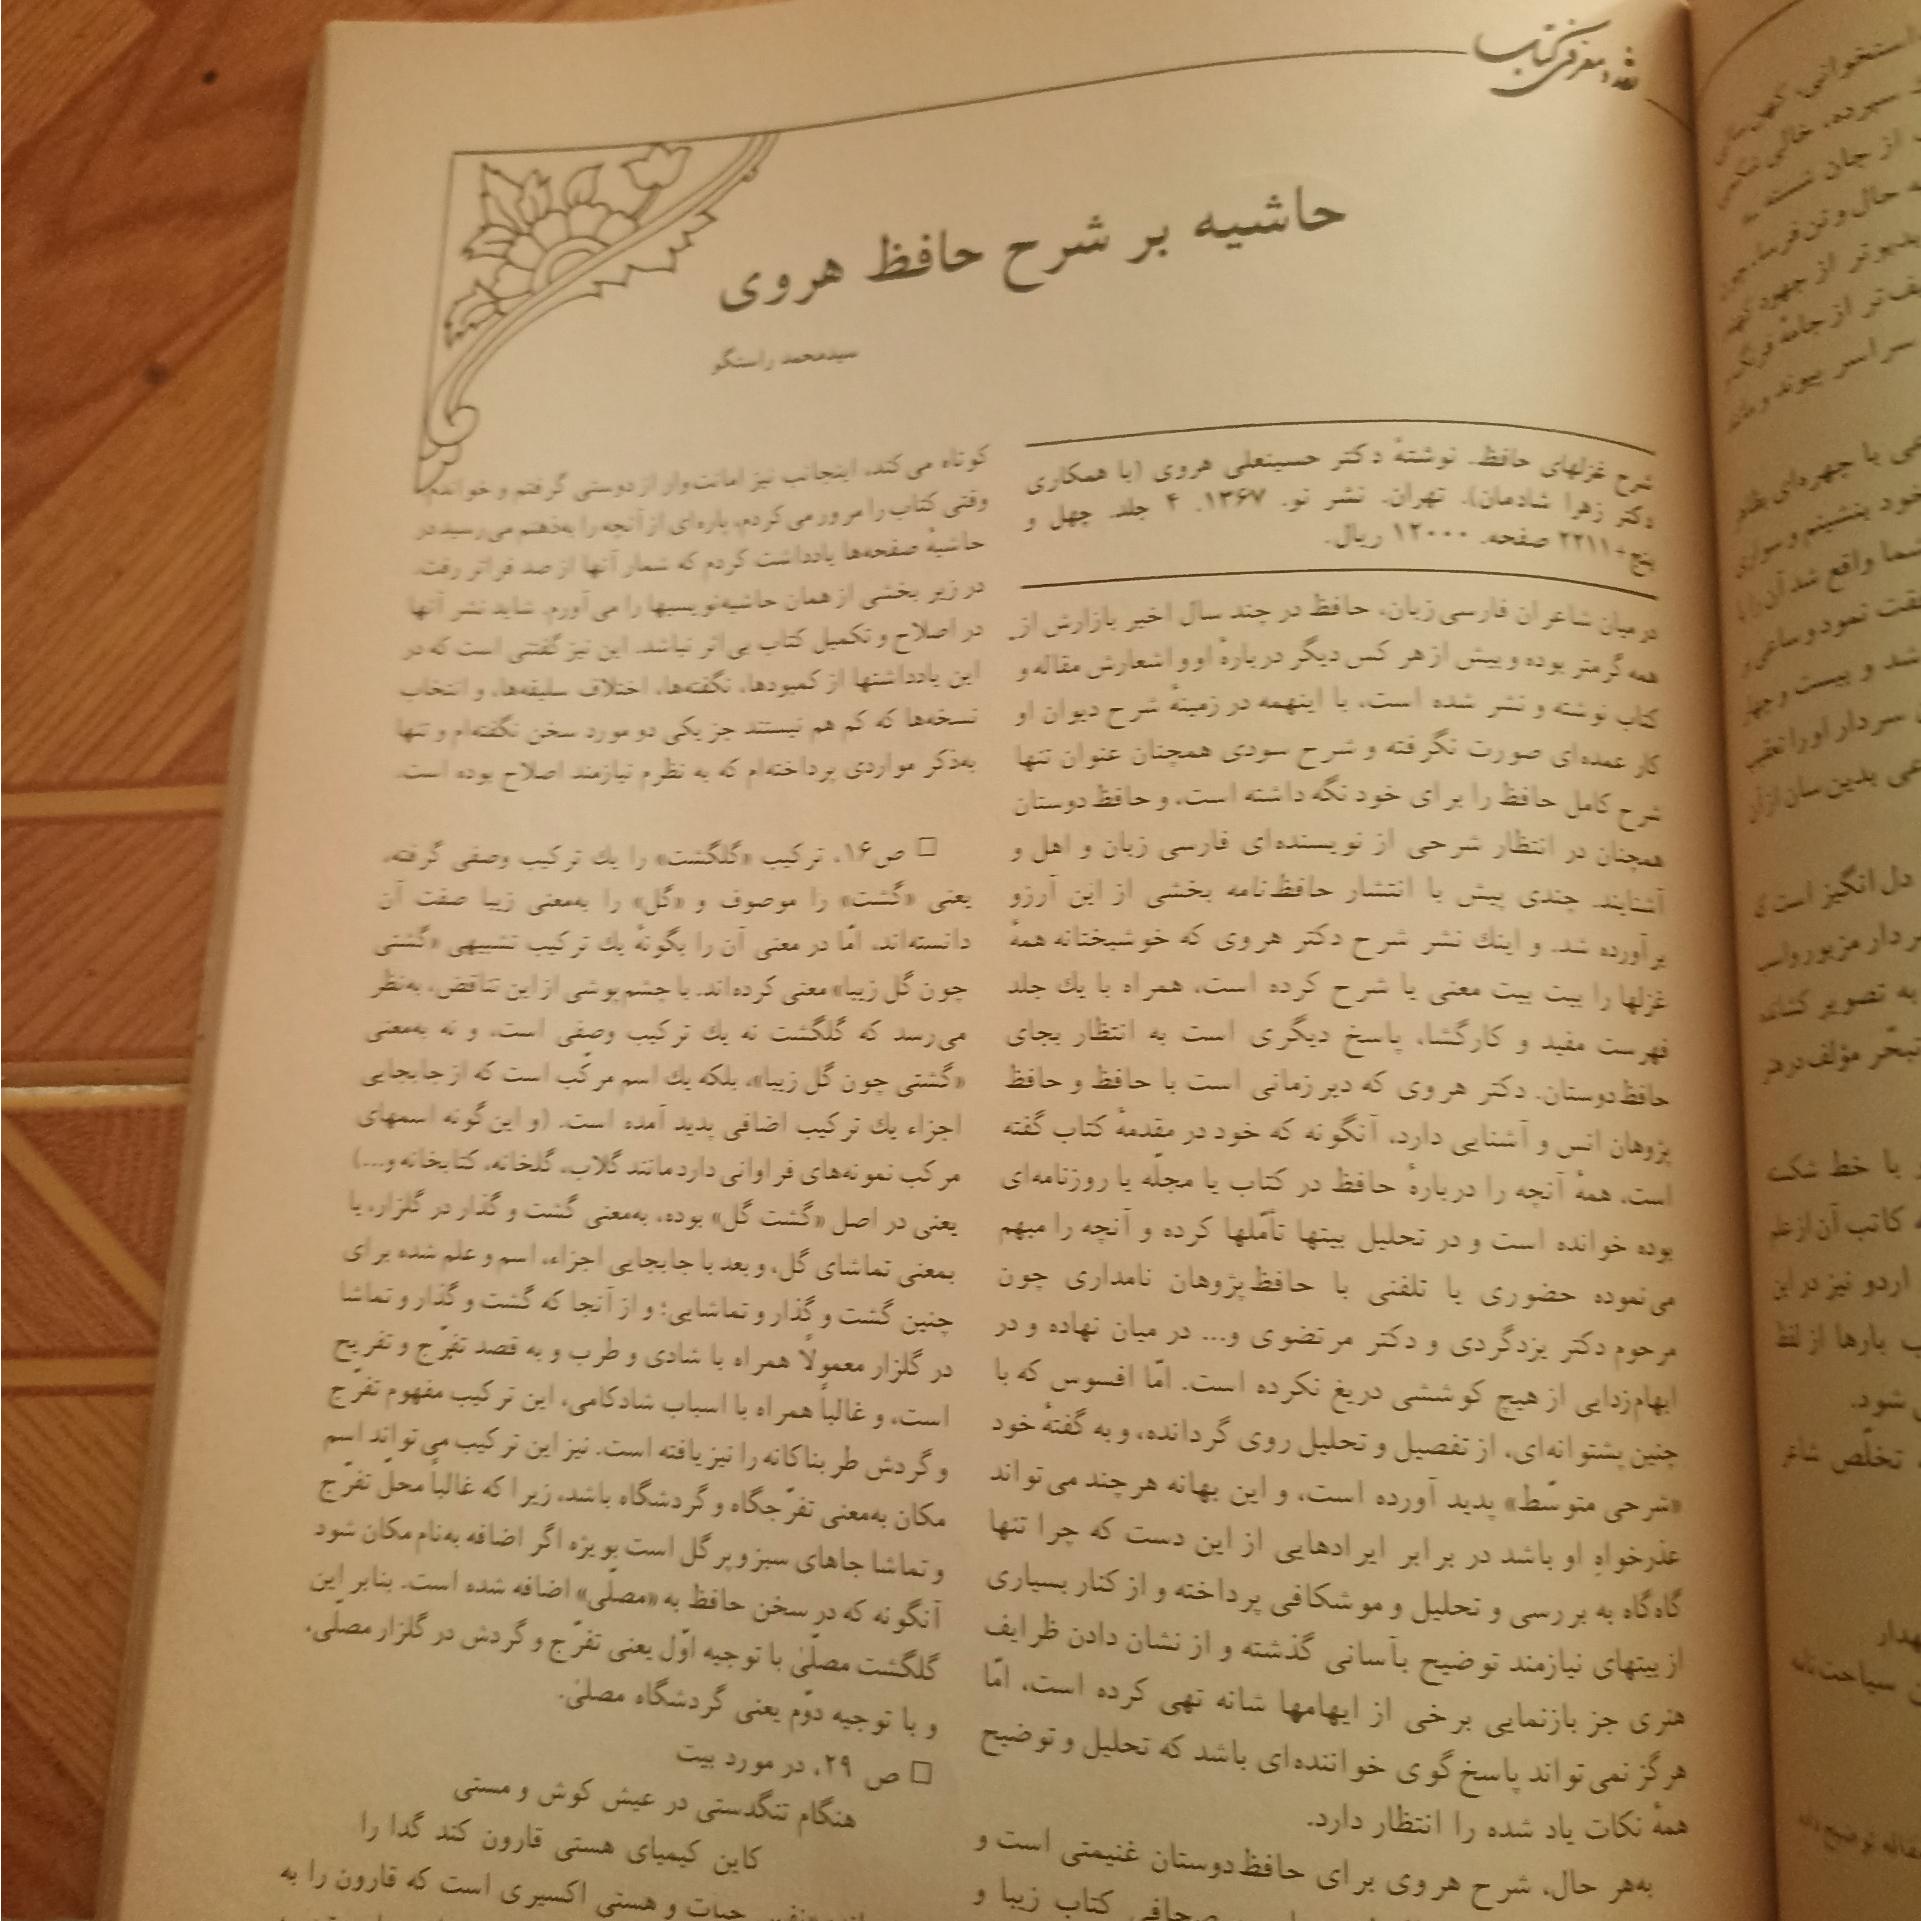 نقد و معرفی کتاب
حاشیه بر شرح حافظ هروی
سیدمحمد راستگو
شرح غزلهای حافظ. نوشتهٔ دکتر حسینعلی هروی (با همکاری
دکتر زهرا شادمان). تهران. نشر نو. ۱۳۶۷. ۴ جلد. چهل و
پنج+۲۲۱۱ صفحه. ۱۲۰۰۰ ریال.
در میان شاعران فارسی زبان، حافظ در چند سال اخیر بازارش از
همه گرمتر بوده و بیش از هر کس دیگر دربارهٔ او و اشعارش مقاله و
کتاب نوشته و نشر شده است، با اینهمه در زمینهٔ شرح دیوان او
کار عمده‌ای صورت نگرفته و شرح سودی همچنان عنوان تنها
شرح کامل حافظ را برای خود نگه داشته است، و حافظ دوستان
همچنان در انتظار شرحی از نویسنده‌ای فارسی زبان و اهل و
آشنایند. چندی پیش با انتشار حافظ‌نامه بخشی از این آرزو
برآورده شد. و اینك نشر شرح دکتر هروی که خوشبختانه همهٔ
غزلها را بیت بیت معنی یا شرح کرده است، همراه با یك جلد
فهرست مفید و کارگشا، پاسخ دیگری است به انتظار بجای
حافظ‌دوستان. دکتر هروی که دیر زمانی است با حافظ و حافظ
پژوهان انس و آشنایی دارد، آنگونه که خود در مقدمهٔ کتاب گفته
است، همهٔ آنچه را دربارهٔ حافظ در کتاب یا مجلّه یا روزنامه‌ای
بوده خوانده است و در تحلیل بیتها تأمّلها کرده و آنچه را مبهم
می‌نموده حضوری یا تلفنی با حافظ‌پژوهان نامداری چون
مرحوم دکتر یزدگردی و دکتر مرتضوی و... در میان نهاده و در
ابهام‌زدایی از هیچ کوششی دریغ نکرده است. امّا افسوس که با
چنین پشتوانه‌ای، از تفصیل و تحلیل روی گردانده، و به گفتهٔ خود
«شرحی متوسّط» پدید آورده است، و این بهانه هرچند می‌تواند
عذرخواهِ او باشد در برابر ایرادهایی از این دست که چرا تنها
گاه‌گاه به بررسی و تحلیل و موشکافی پرداخته و از کنار بسیاری
از بیتهای نیازمند توضیح بآسانی گذشته و از نشان دادن ظرایف
هنری جز بازنمایی برخی از ایهامها شانه تهی کرده است، امّا
هرگز نمی‌تواند پاسخ گوی خواننده‌ای باشد که تحلیل و توضیح
همهٔ نکات یاد شده را انتظار دارد.
به‌هر حال، شرح هروی برای حافظ‌دوستان غنیمتی است و
صحافی کتاب زیبا و
کوتاه می‌کند، اینجانب نیز امانت‌وار از دوستی گرفتم و خواندم.
وقتی کتاب را مرور می‌کردم، پاره‌ای از آنچه را به‌ذهنم می‌رسید در
حاشیهٔ صفحه‌ها یادداشت کردم که شمار آنها از صد فراتر رفت.
در زیر بخشی از همان حاشیه‌نویسیها را می‌آورم. شاید نشر آنها
در اصلاح و تکمیل کتاب بی‌اثر نباشد. این نیز گفتنی است که در
این یادداشتها از کمبودها، نگفته‌ها، اختلاف سلیقه‌ها، و انتخاب
نسخه‌ها که کم هم نیستند جز یکی دو مورد سخن نگفته‌ام و تنها
به‌ذکر مواردی پرداخته‌ام که به نظرم نیازمند اصلاح بوده است.
□ ص۱۶، ترکیب «گلگشت» را یك ترکیب وصفی گرفته،
یعنی «گشت» را موصوف و «گل» را به‌معنی زیبا صفت آن
دانسته‌اند، امّا در معنی آن را بگونهٔ یك ترکیب تشبیهی «گشتی
چون گل زیبا» معنی کرده‌اند. با چشم‌پوشی از این تناقض، به‌نظر
می‌رسد که گلگشت نه یك ترکیب وصفی است، و نه به‌معنی
«گشتی چون گل زیبا»، بلکه یك اسم مرکّب است که از جابجایی
اجزاء یك ترکیب اضافی پدید آمده است. (و این‌گونه اسمهای
مرکب نمونه‌های فراوانی دارد مانند گلاب، گلخانه، کتابخانه و...)
یعنی در اصل «گشت گل» بوده، به‌معنی گشت و گذار در گلزار، یا
بمعنی تماشای گل، و بعد با جابجایی اجزاء، اسم و علم شده برای
چنین گشت و گذار و تماشایی؛ و از آنجا که گشت و گذار و تماشا
در گلزار معمولاً همراه با شادی و طرب و به قصد تفرّج و تفریح
است، و غالباً همراه با اسباب شادکامی، این ترکیب مفهوم تفرّج
و گردش طربناکانه را نیز یافته است. نیز این ترکیب می‌تواند اسم
مکان به‌معنی تفرّجگاه و گردشگاه باشد، زیرا که غالباً محلّ تفرّج
و تماشا جاهای سبز و پر گل است بویژه اگر اضافه به‌نام مکان شود
آنگونه که در سخن حافظ به «مصلّی» اضافه شده است. بنابر این
گلگشت مصلّیٰ با توجیه اوّل یعنی تفرّج و گردش در گلزار مصلّی،
و با توجیه دوّم یعنی گردشگاه مصلیٰ.
□ ص ۲۹، در مورد بیت
هنگام تنگدستی در عیش کوش و مستی
کاین کیمیای هستی قارون کند گدا را
حیات و هستی اکسیری است که قارون را به